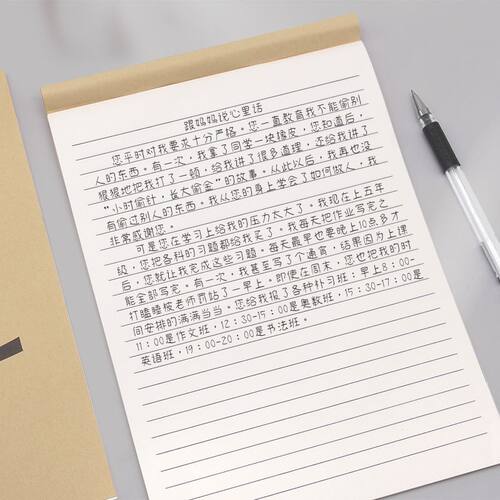 跟妈妈说心里话
您平时对我要求十分严格。您一直教育我不能偷别
人的东西。有一次，我拿了同学一块橡皮，您知道后，
狠狠地把我打了一顿，给我讲了很多道理，还给我讲了
“小时偷针，长大偷金”的故事。从此以后，我再也没
有偷过别人的东西。我从您的身上学会了如何做人，我
非常感谢您。
可是您在学习上给我的压力太大了。我现在上五年
级，您把各科的习题都给我买了。我每天把作业写完之
后，您就让我完成这些习题。每天最早也要晚上10点多才
能全部写完。有一次，我甚至写了个通宵，结果因为上课
打瞌睡被老师罚站了一早上。即使在周末，您也把我的时
间安排的满满当当。您给我报了各种补习班：早上8：00-
11：00是作文班，12：30-15：00是奥数班，15：30-17：00是
英语班，19：00-20：00是书法班。